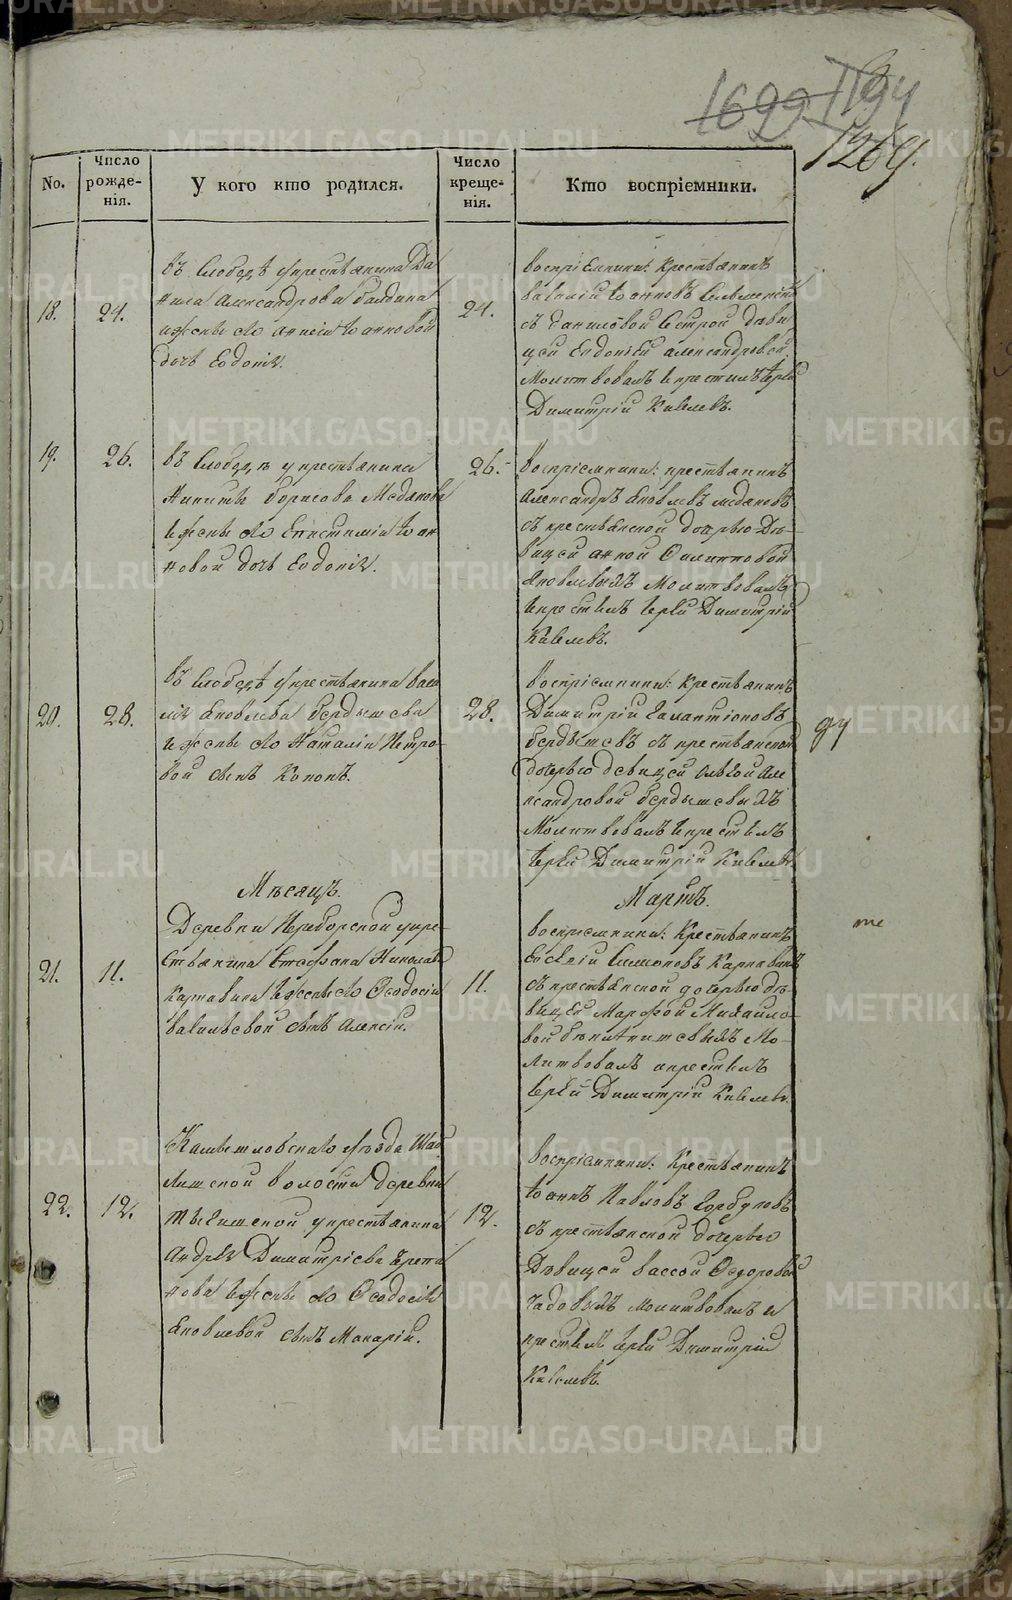 1699 1194
1269.
No.
Число рожде-
нія.
У кого кто родился.
Число креще-
нія.
Кто воспріемники.
18.
24.
въ Слободѣ у крестьянина Да
нила Александрова
и жены его Анисіи Іоанновой
дочь Евдокія.
24.
воспріемники: крестьянинъ
Василій Іоанновъ
съ Даниловой сестрой дѣви
цей Евдокіей Александровой
Молитвовалъ и крестилъ Іерей
Димитрій Киселевъ.
19.
26.
въ Слободѣ у крестьянина
Никиты Борисова
и жены его Епистиміи Іоан
новой дочь Евдокія.
26.
воспріемники: крестьянинъ
Александръ Яковлевъ
съ крестьянской дочерью Дѣ-
вицей Анной Филипповой
Яковлевыхъ Молитвовалъ
и крестилъ Іерей Димитрій
Киселевъ.
20.
28.
въ Слободѣ у крестьянина Васи
лія Яковлева Бердышева
и жены его Наталіи Петро-
вой сынъ Кононъ.
28.
воспріемники: Крестьянинъ
Димитрій Галактіоновъ
Бердышевъ съ крестьянской
дочерью девицей Але
ксандровой Бердышевыхъ
Молитвовалъ и крестилъ
Іерей Димитрій Киселевъ.
Мѣсяцъ.
Мартъ.
21.
11.
Деревни у кре-
стьянина Стефана Николаева
Каргавина и жены его Феодосіи
Васильевой сынъ Алексій.
11.
воспріемники: Крестьянинъ
Симоновъ
съ крестьянской дочерью дѣ-
вицей Марфой Михайло-
вой Мо-
литвовалъ и крестилъ
Іерей Димитрій Киселевъ.
22.
12.
Камышловскаго уѣзда
волости деревни
у крестьянина
Андрея Димитріева Черепа
нова и жены его Феодосіи
Яковлевой сынъ Макарій.
12.
воспріемники: Крестьянинъ
Іоаннъ Павловъ Горбуновъ
съ крестьянской дочерью
Дѣвицей Вассой Феодоровой
Молитвовалъ и
крестилъ Іерей Димитрій
Киселевъ.
METRIKI.GASO-URAL.RU